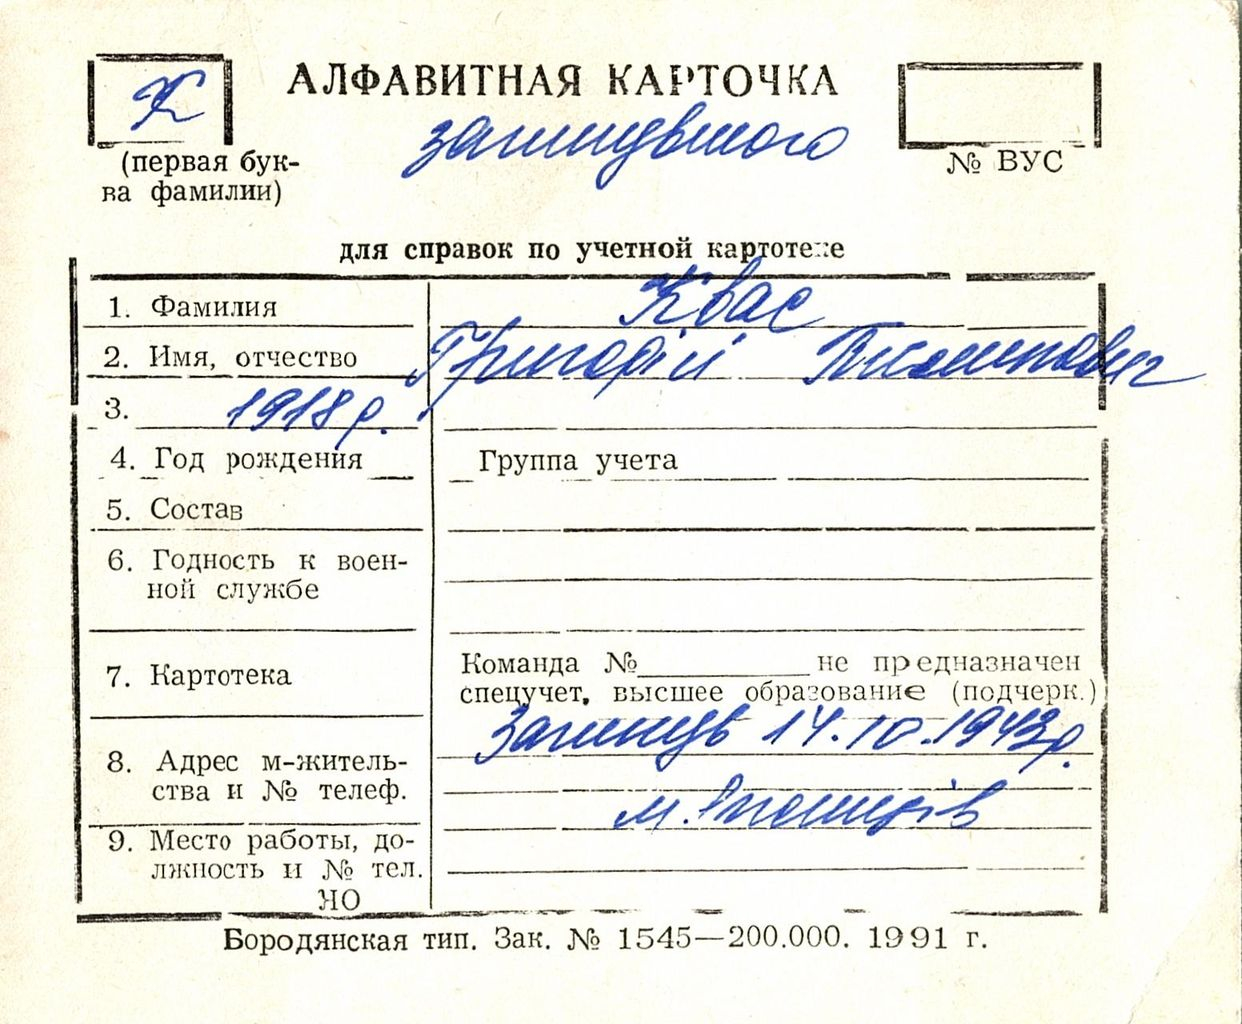 К
АЛФАВИТНАЯ КАРТОЧКА
загинувшого
(первая бук-
ва фамилии)
№ ВУС
для справок по учетной картотеке
1. Фамилия
Квас
2. Имя, отчество
Григорій
3. 1918 р.
4. Год рождения
Группа учета
5. Состав
6. Годность к воен-
ной службе
7. Картотека
Команда №________ не предназначен
спецучет, высшее образование (подчерк.)
Загинув 14.10.1943р.
8. Адрес м-житель-
ства и № телеф.
м.
9. Место работы, до-
лжность и № тел.
НО
Бородянская тип. Зак. № 1545—200.000. 1991 г.